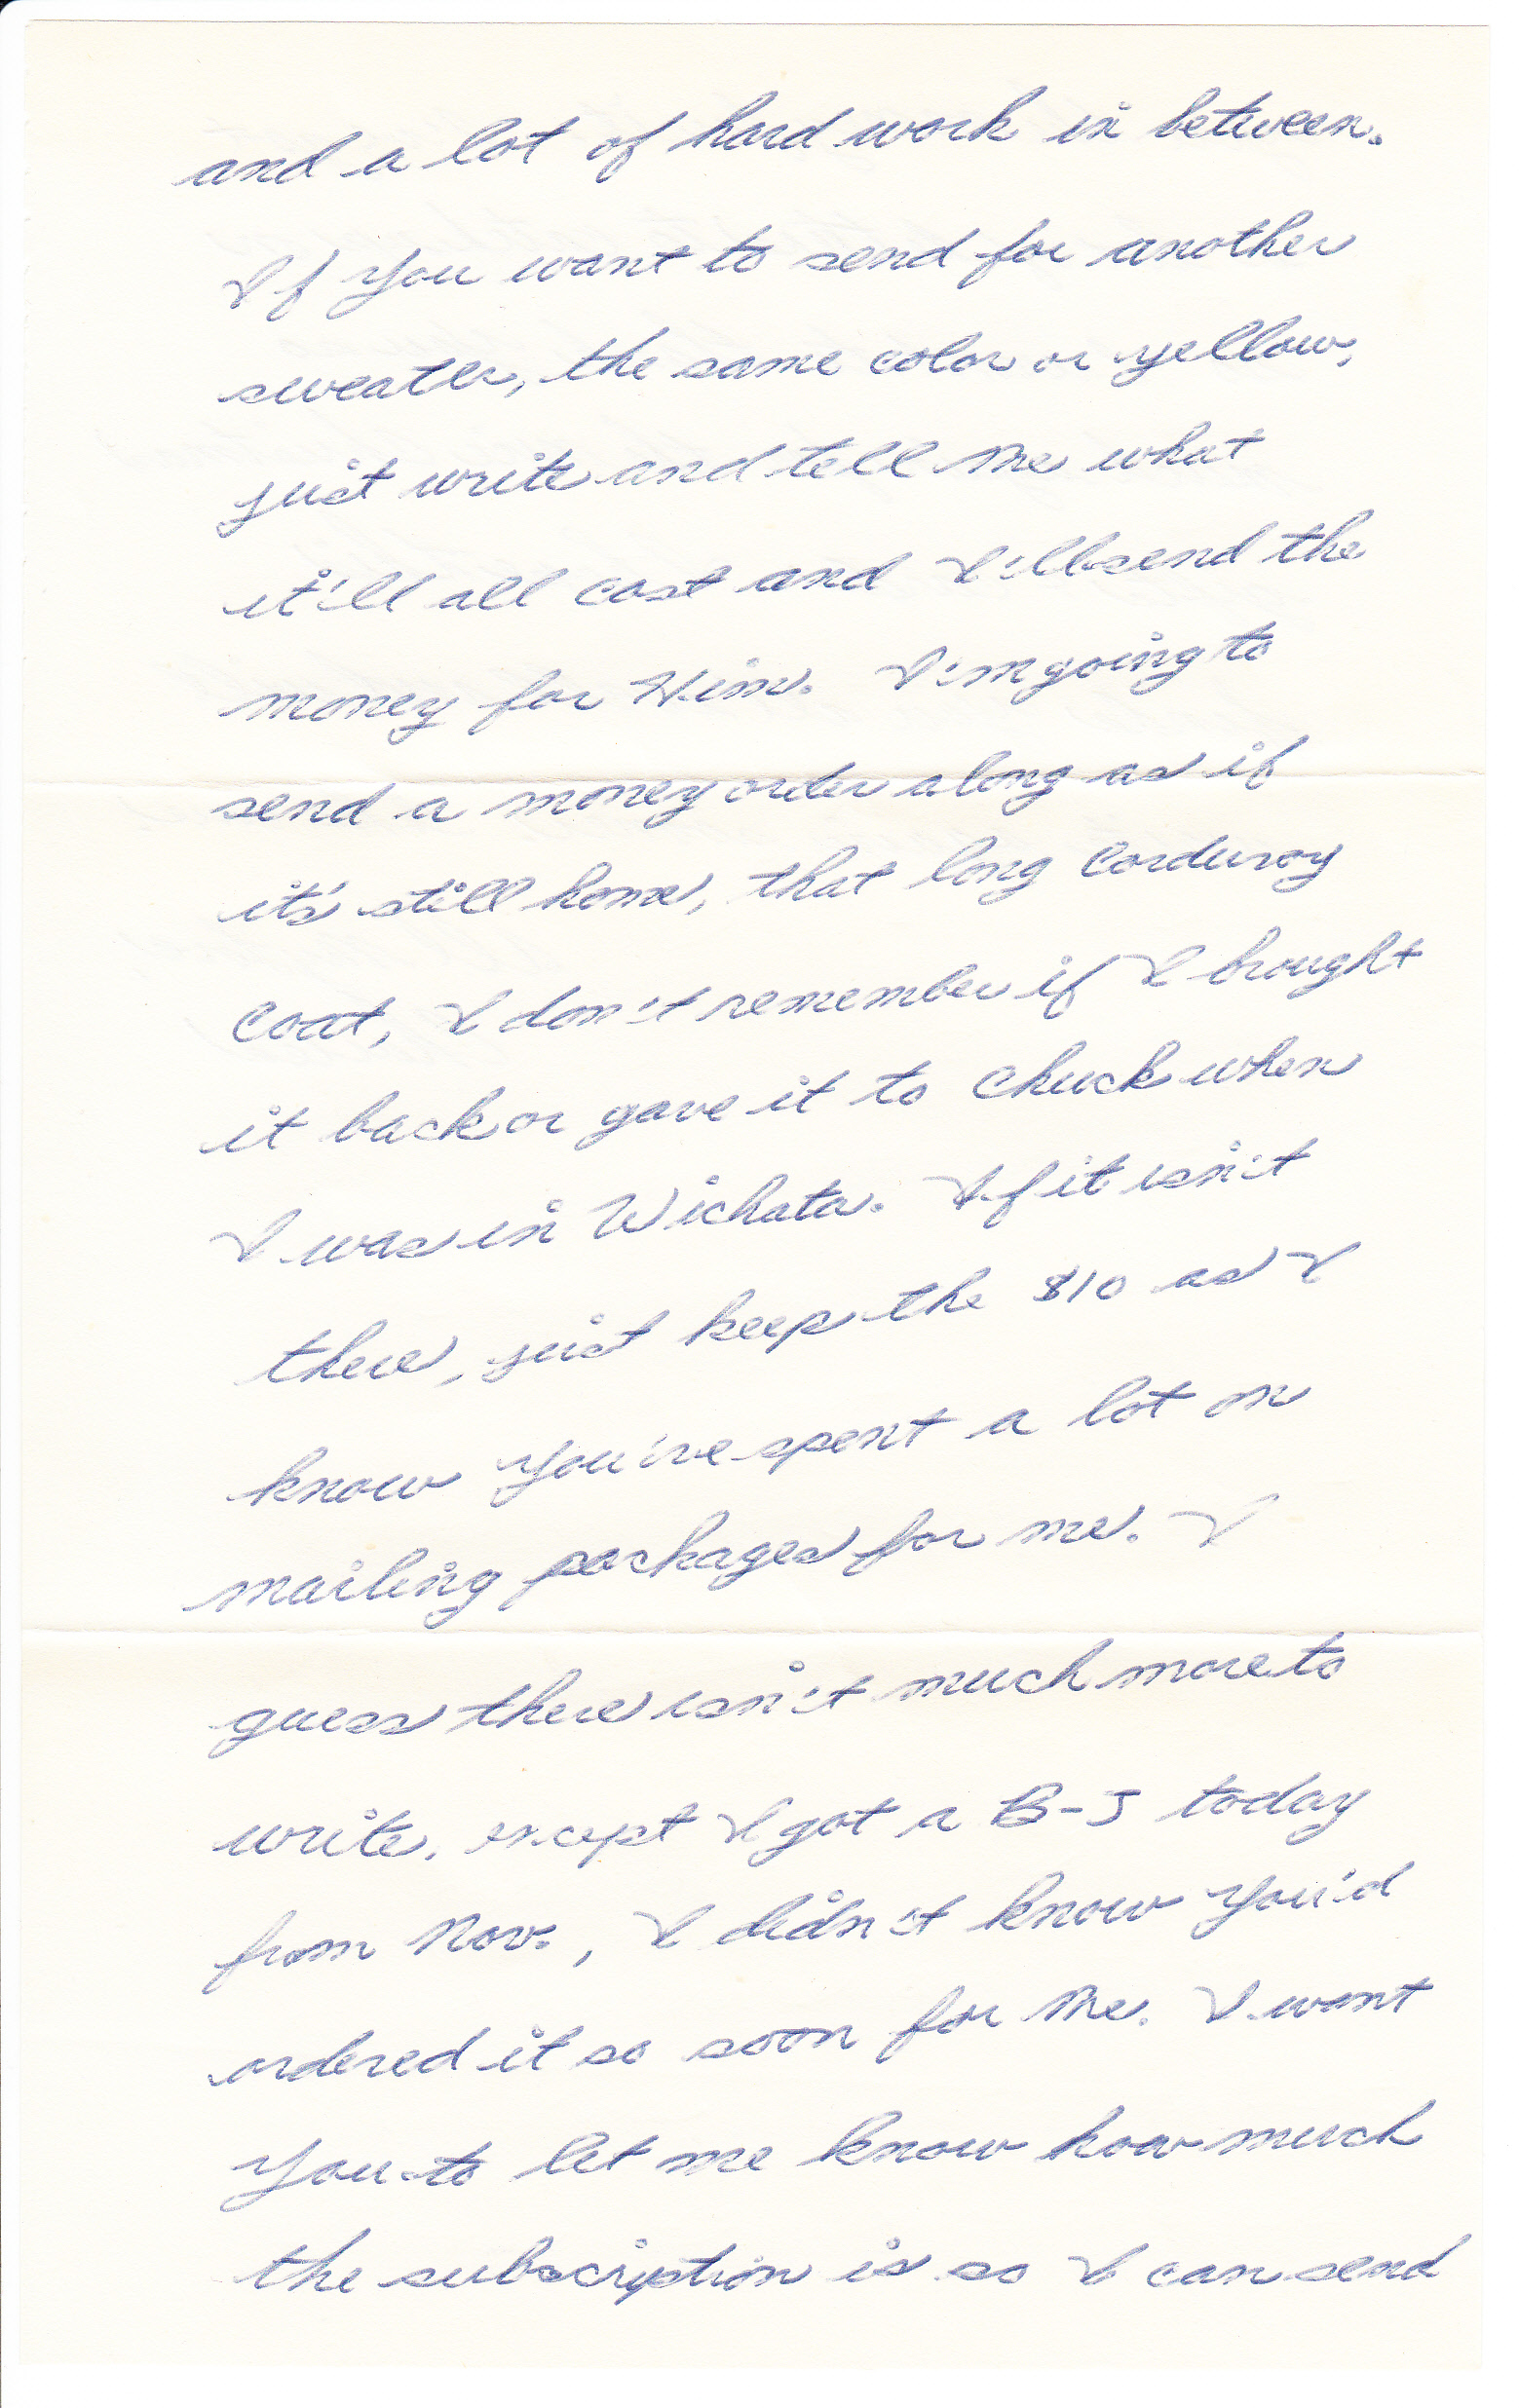 and a lot of hard work in between.
If you want to send for another
sweater, the same color or yellow,
just write and tell me what
it'll all cost and I'll send the
money for Him. I'm going to
send a money order along as if
it's still home, that long corduroy
coat, I don't remember if I brought
it back or gave it to Chuck when
I was in Wichata. If it isn't
there, just keep the $10 as I
know you've spent a lot on
mailing packages for me. I
guess there isn't much more to
write, except I got a B-J today
from Nov., I didn't know you'd
ordered it so soon for me. I want
you to let me know how much
the subscription is so I can send